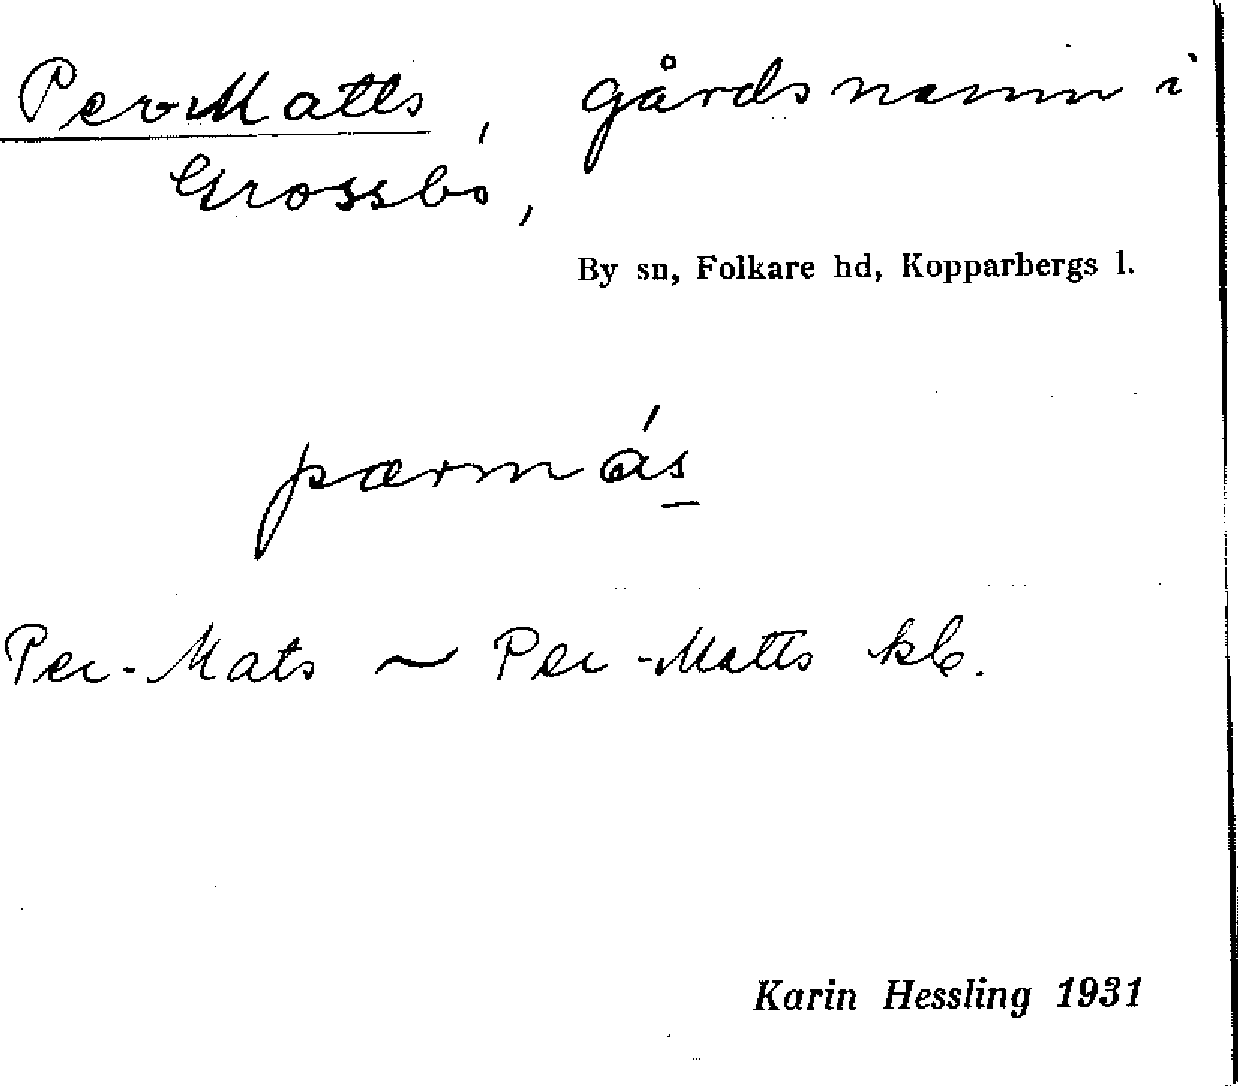 Per Matts, gårdsnamn i
Grossbo,
By sn, Folkare hd, Kopparbergs l.
pærmás
Per-Mats ~ Per-Matts kb.
Karin Hessling 1931